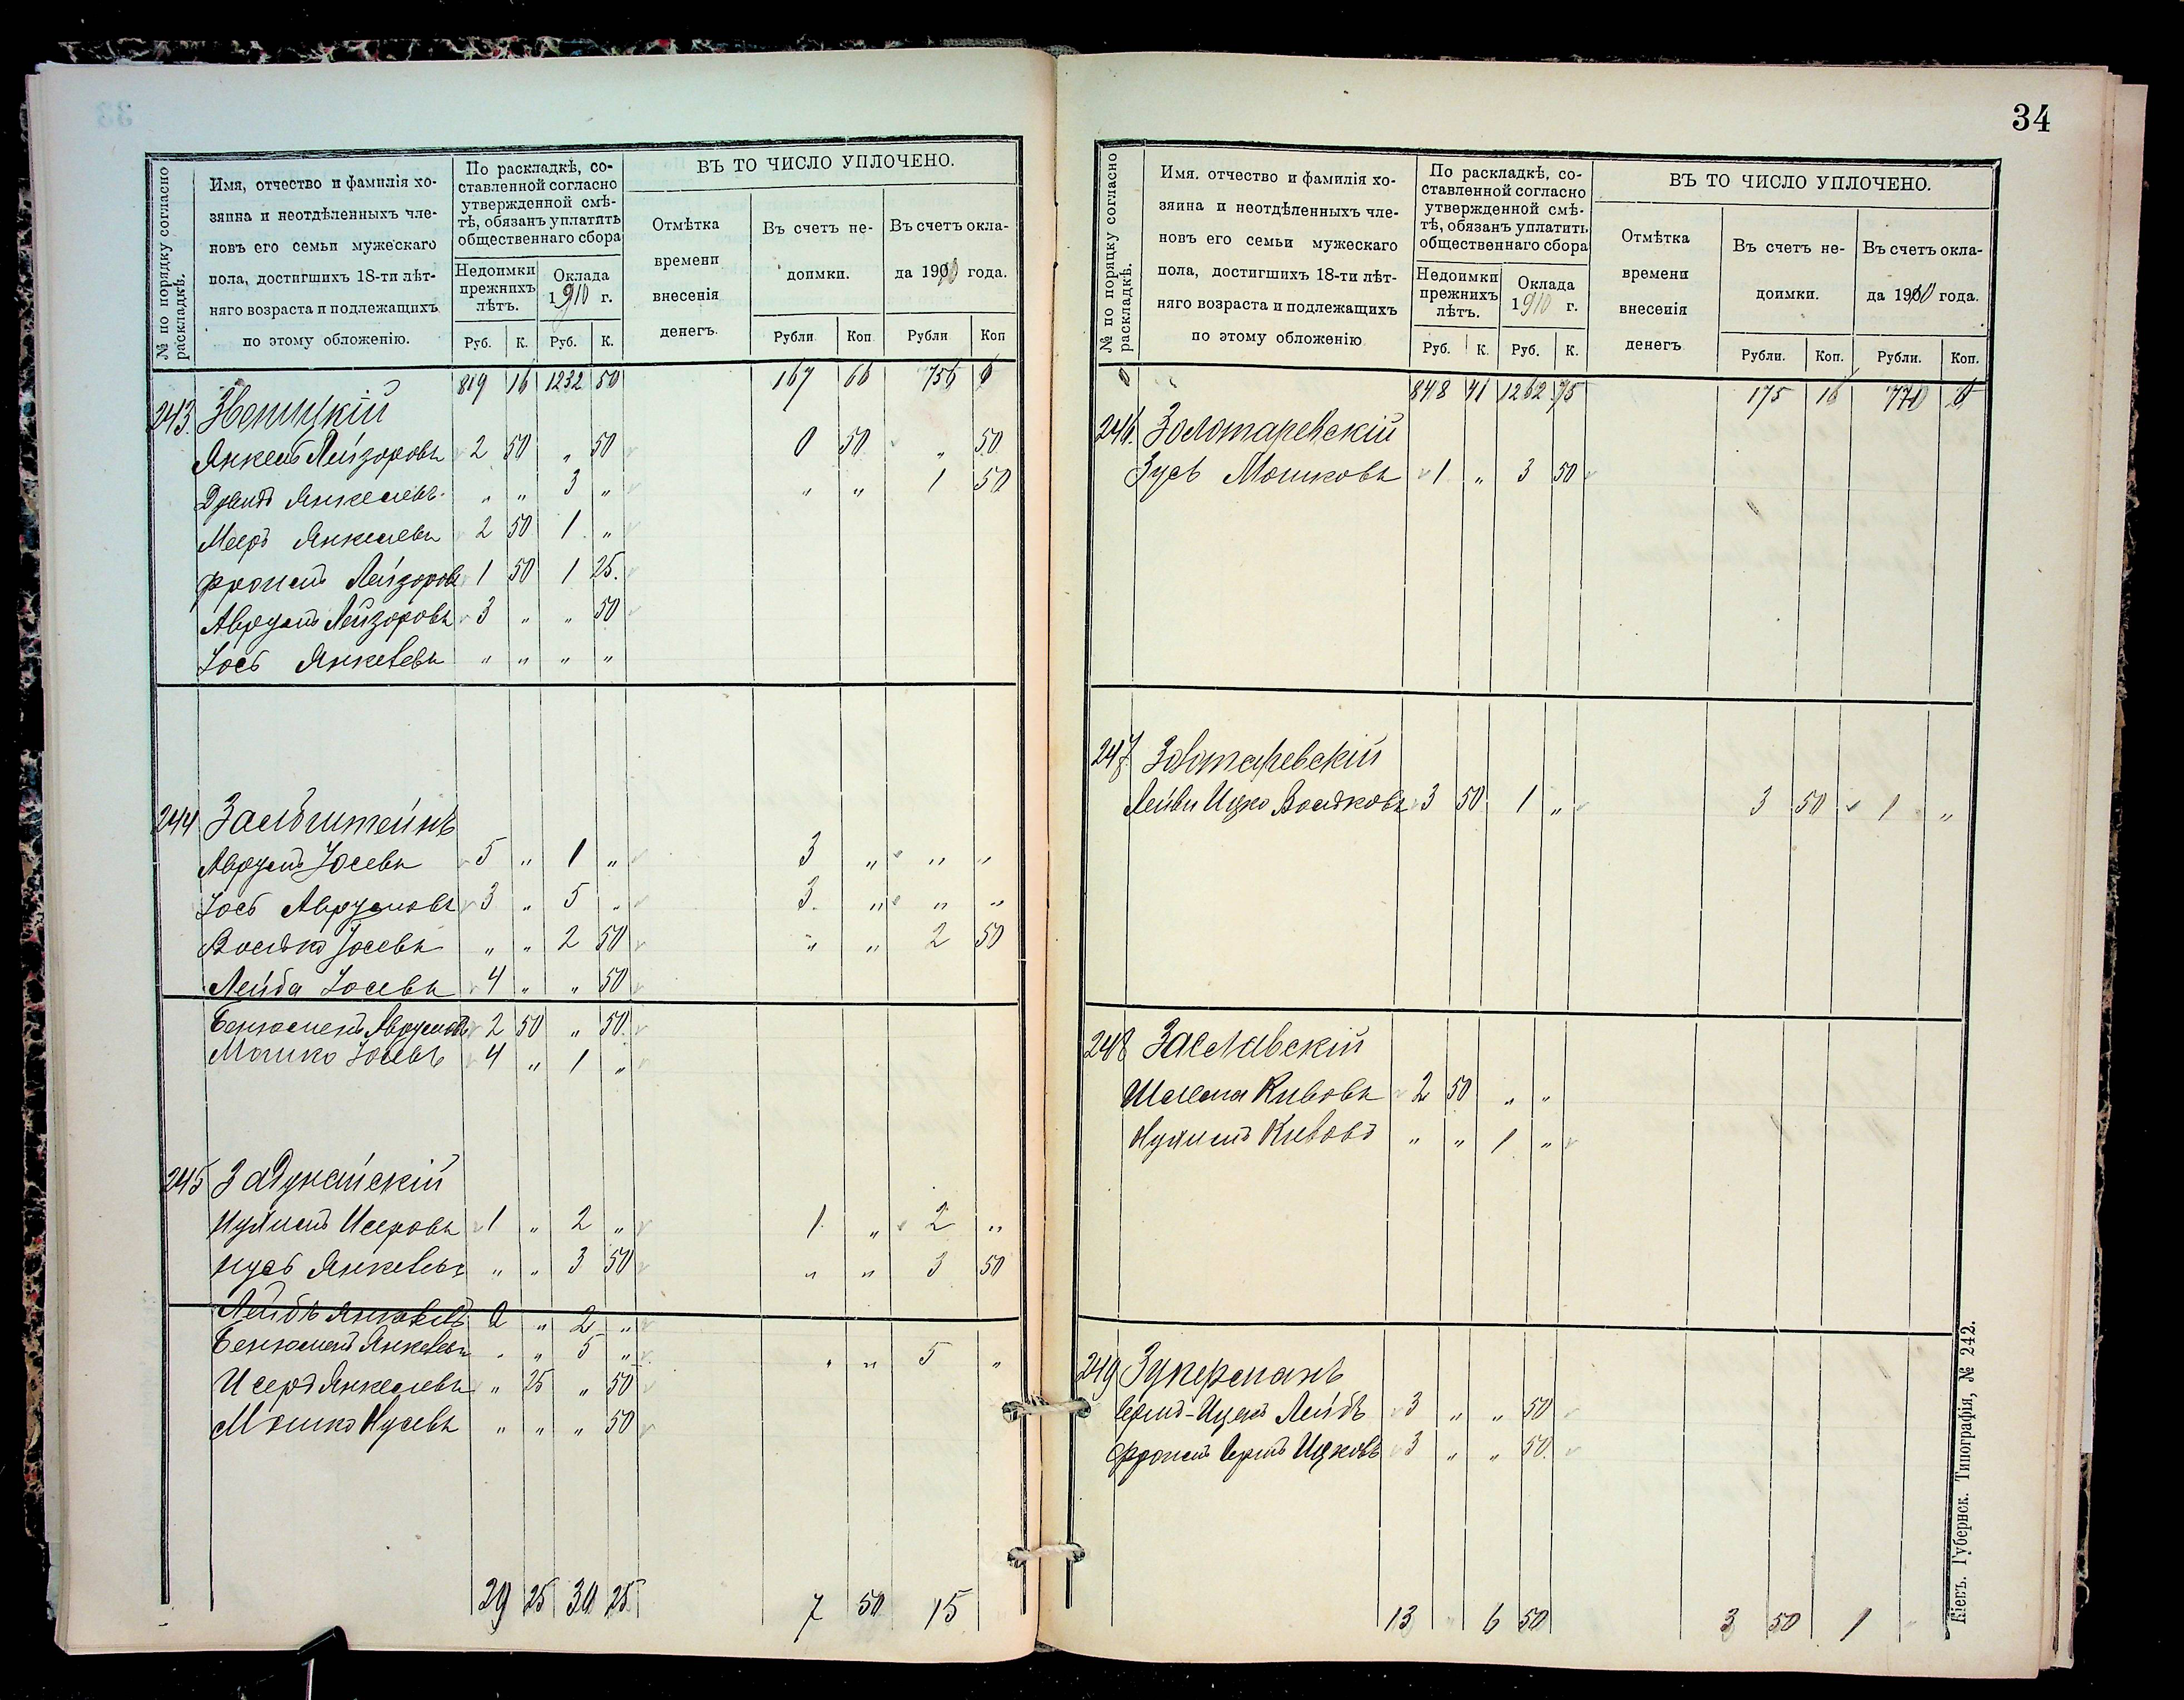 № по порядку согласно раскладкѣ.
Имя, отчество и фамилія хозяина и неотдѣленныхъ членовъ его семьи мужескаго пола, достигшихъ 18-ти лѣтняго возраста и подлежащихъ по этому обложенію.
По раскладкѣ, составленной согласно утвержденной смѣтѣ, обязанъ уплатить общественнаго сбора
Недоимки прежнихъ лѣтъ.
Оклада 1910 г.
ВЪ ТО ЧИСЛО УПЛОЧЕНО.
Отмѣтка времени внесенія денегъ.
Въ счетъ недоимки.
Въ счетъ оклада 1910 года.
Руб. К. Руб. К. Рубли Коп Рубли Коп
819 16 1232 50 167 66 756
243. Звеницкій
Янкель Лейзоровъ 2 50 „ 50 0 50 „ 50
Давидъ Янкелевъ „ „ 3 „ „ „ 1 50
Мееръ Янкелевъ 2 50 1 „
Фроимъ Лейзоровъ 1 50 1 25.
Аврумъ Лейзоровъ 3 „ „ 50
Іось Янкелевъ „ „ „ „
244 Зальбштейнъ
Аврумъ Іосевъ 5 „ 1 „ 3 „ „ „
Іось Аврумовъ 3 „ 5 „ 3. „ „ „
Волько Іосевъ „ „ 2 50 „ „ 2 50
Лейба Іосевъ 4 „ „ 50
Бенюменъ Аврумовъ 2 50 „ 50
Мошко Іосевъ 4 „ 1 „
245 Задунайскій
Нухимъ Исеровъ 1 „ 2 „ 1. „ 2 „
Нусь Янкелевъ „ „ 3 50 „ „ 3 50
Лейбъ Янкелевъ 2 „ 2 „
Бенюменъ Янкелевъ „ „ 5 „ „ „ 5 „
Исеръ Янкелевъ „ 25 „ 50
Мошко Нусевъ „ „ „ 50
29 25 30 25 7 50 15
34
№ по порядку согласно раскладкѣ.
Имя. отчество и фамилія хозяина и неотдѣленныхъ членовъ его семьи мужескаго пола, достигшихъ 18-ти лѣтняго возраста и подлежащихъ по этому обложенію
По раскладкѣ, составленной согласно утвержденной смѣтѣ, обязанъ уплатить общественнаго сбора
Недоимки прежнихъ лѣтъ.
Оклада 1910 г.
ВЪ ТО ЧИСЛО УПЛОЧЕНО.
Отмѣтка времени внесенія денегъ
Въ счетъ недоимки.
Въ счетъ оклада 1910 года.
Руб. К. Руб. К. Рубли. Коп. Рубли. Коп.
848 41 1262 75 175 16
246. Золотаревскій
Зусь Мошковъ 1 „ 3 50
247. Золотаревскій
Лейви Ицко Вольковъ 3 50 1 „ 3 50 1 „
248 Заславскій
Шлема Кивовъ 2 50 „ „
Нухимъ Кивовъ „ „ 1 „
249 Зукерманъ
Берко-Ицко Лейбъ 3 „ „ 50
Фроимъ Ицковъ 3 „ „ 50.
13 6 50 3 50 1
Кіевъ. Губернск. Типографія, № 242.